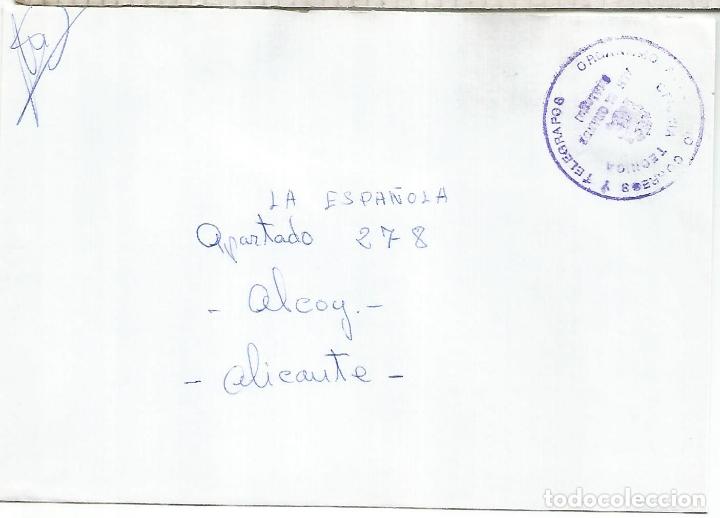 ORGANISMO CORREOS Y TELEGRAFOS
TECNICA
LA ESPAÑOLA
Apartado 278
- Alcoy.-
- Alicante -
todocoleccion.net